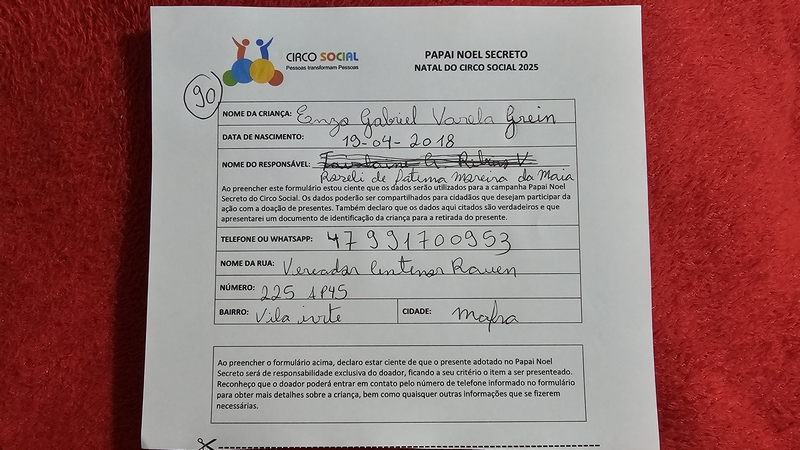 CIRCO SOCIAL
Pessoas transformam Pessoas
PAPAI NOEL SECRETO
NATAL DO CIRCO SOCIAL 2025
90
NOME DA CRIANÇA: Enzo Gabriel Varela Grein
DATA DE NASCIMENTO: 19-04-2018
NOME DO RESPONSÁVEL:
Roseli de fatima Moreira da Maia
Ao preencher este formulário estou ciente que os dados serão utilizados para a campanha Papai Noel
Secreto do Circo Social. Os dados poderão ser compartilhados para cidadãos que desejam participar da
ação com a doação de presentes. Também declaro que os dados aqui citados são verdadeiros e que
apresentarei um documento de identificação da criança para a retirada do presente.
TELEFONE OU WHATSAPP: 47 991700953
NOME DA RUA: Vereador Rauen
NÚMERO: 225 AP45
BAIRRO: Vila CIDADE: Mafra
Ao preencher o formulário acima, declaro estar ciente de que o presente adotado no Papai Noel
Secreto será de responsabilidade exclusiva do doador, ficando a seu critério o item a ser presenteado.
Reconheço que o doador poderá entrar em contato pelo número de telefone informado no formulário
para obter mais detalhes sobre a criança, bem como quaisquer outras informações que se fizerem
necessárias.